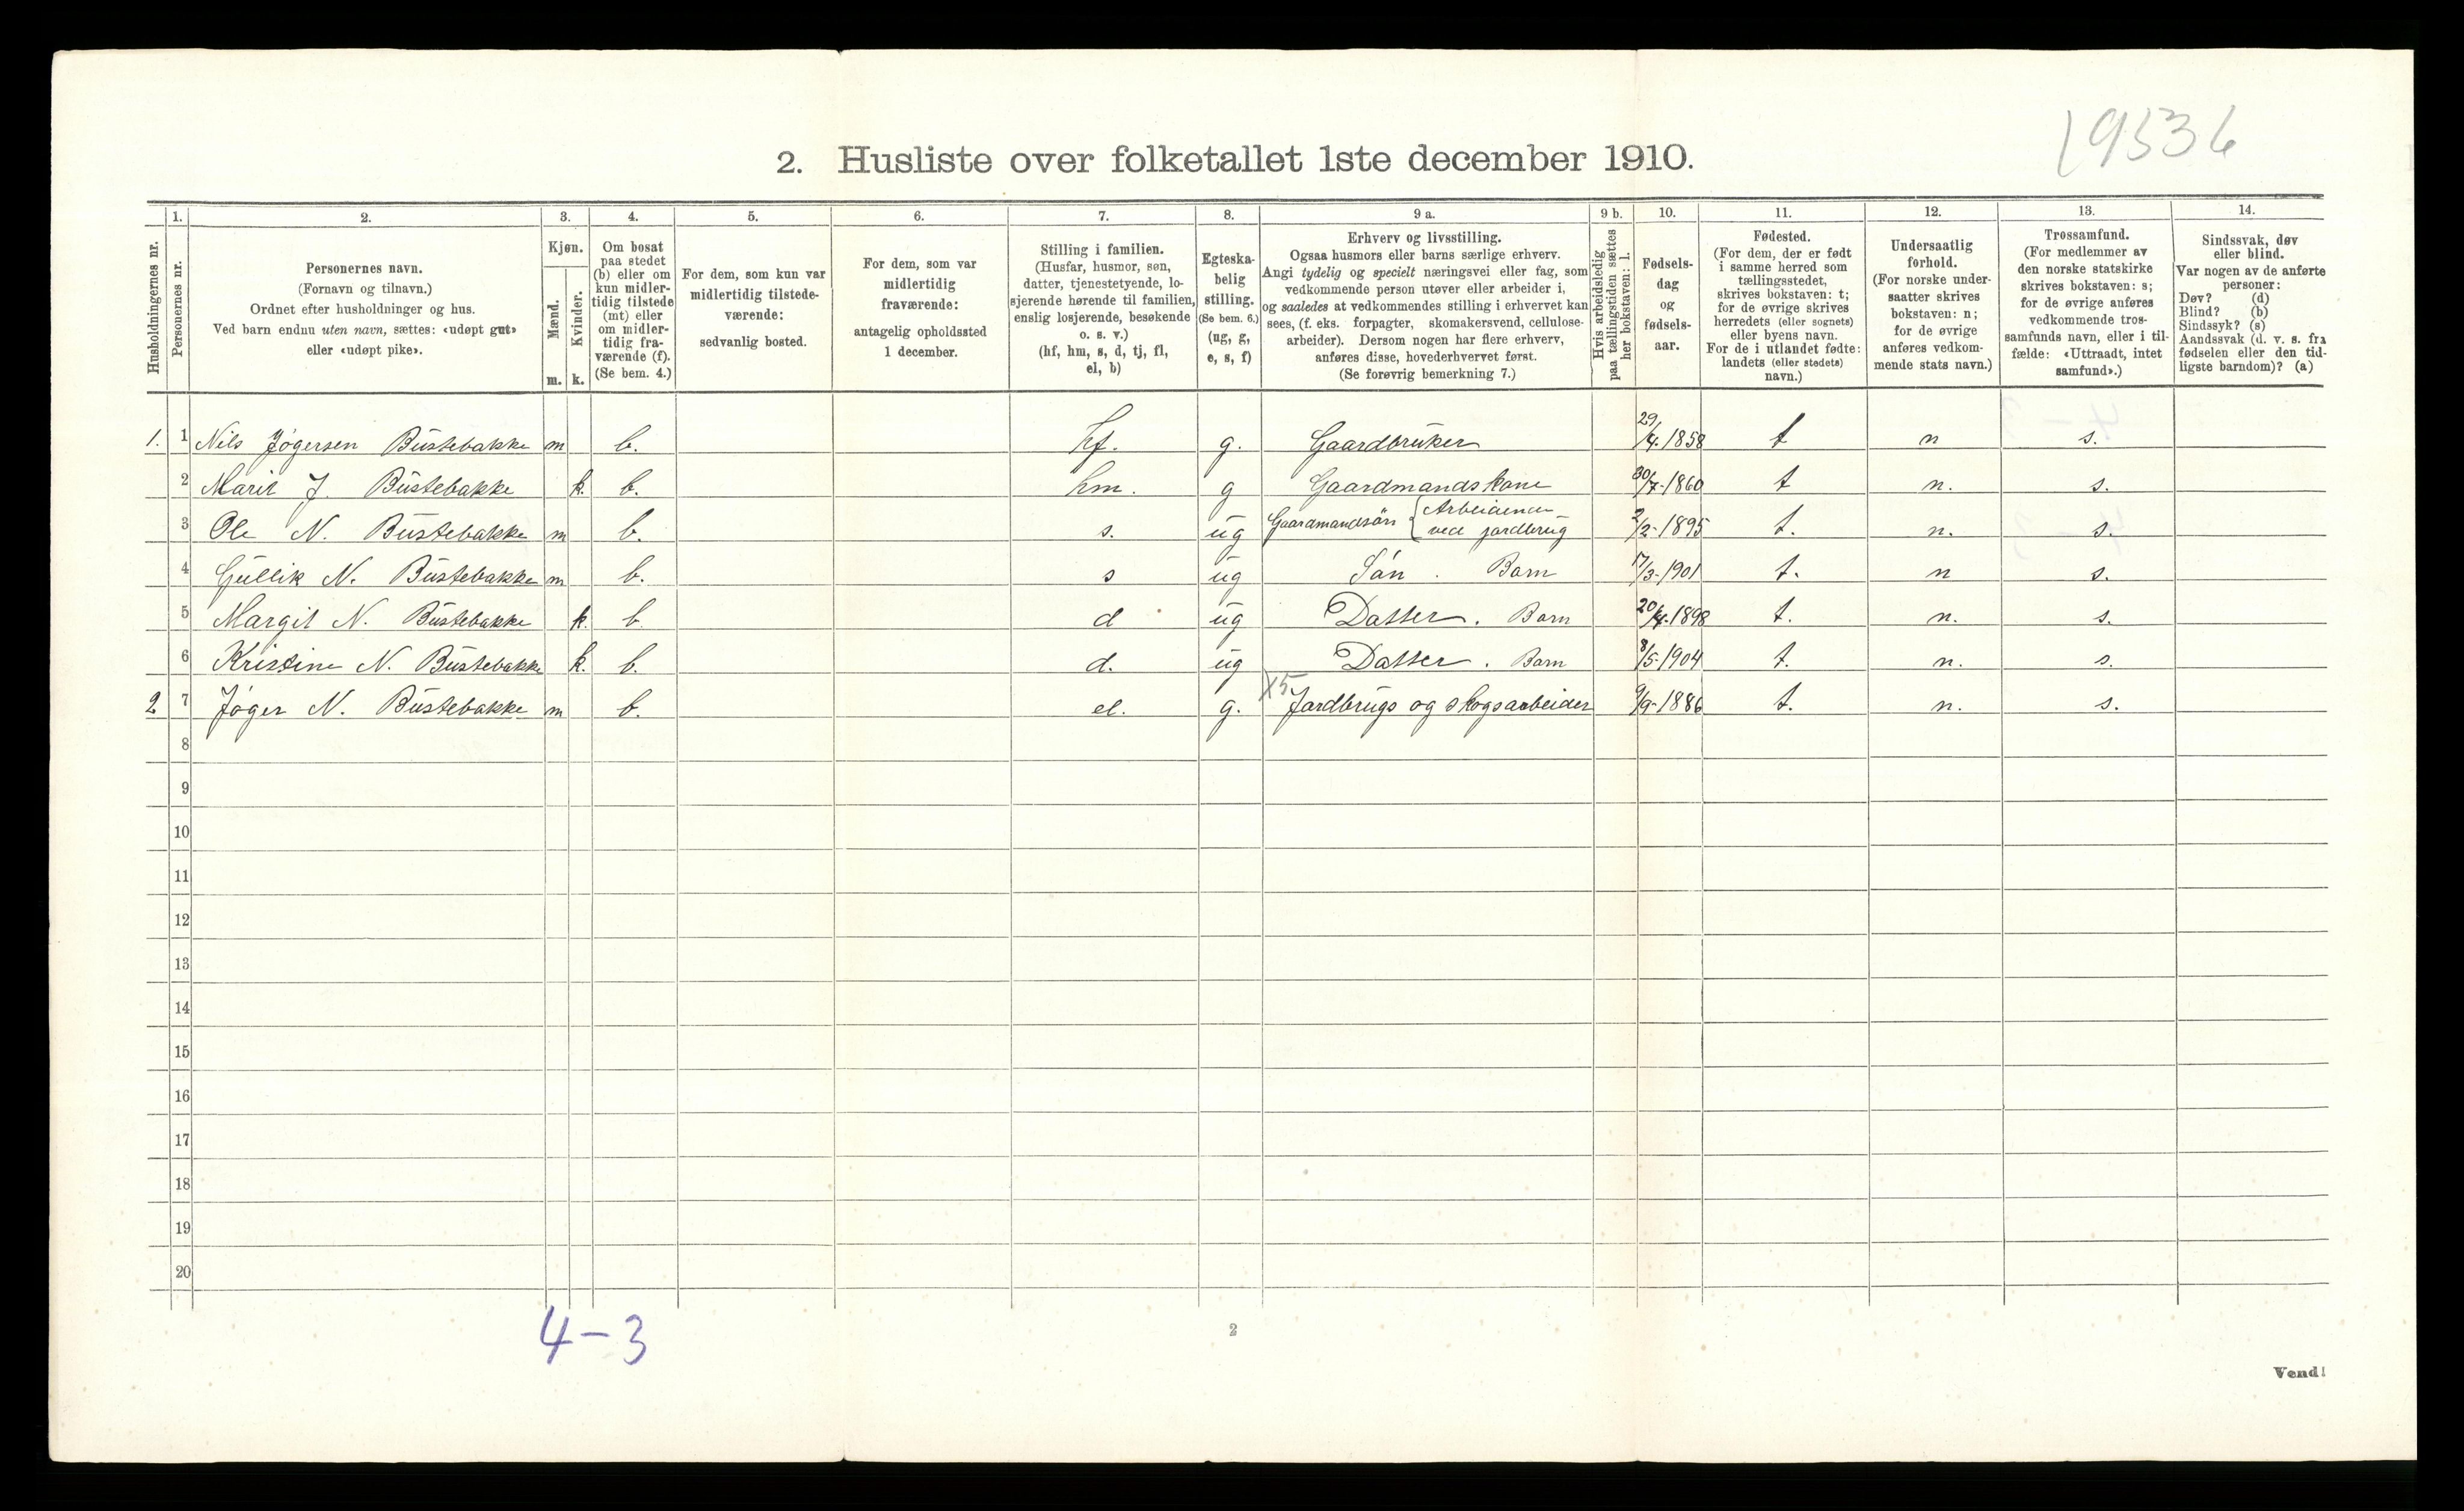 19536
2. Husliste over folketallet 1ste december 1910.
Husholdningernes nr.
1.
Personernes nr.
2.
Personernes navn.
(Fornavn og tilnavn.)
Ordnet efter husholdninger og hus.
Ved barn endnu uten navn, sættes: «udøpt gut»
eller «udøpt pike».
3.
Kjøn.
Mænd.
Kvinder.
m. k.
4.
Om bosat
paa stedet
(b) eller om
kun midler-
tidig tilstede
(mt) eller
om midler-
tidig fra-
værende (f).
(Se bem. 4.)
5.
For dem, som kun var
midlertidig tilstede-
værende:
sedvanlig bosted.
6.
For dem, som var
midlertidig
fraværende:
antagelig opholdssted
1 december.
7.
Stilling i familien.
(Husfar, husmor, søn,
datter, tjenestetyende, lo-
sjerende hørende til familien,
enslig losjerende, besøkende
o. s. v.)
(hf, hm, s, d, tj, fl,
el, b)
8.
Egteska-
belig
stilling.
(Se bem. 6.)
(ug, g,
e, s, f)
9 a.
Erhverv og livsstilling.
Ogsaa husmors eller barns særlige erhverv.
Angi tydelig og specielt næringsvei eller fag, som
vedkommende person utøver eller arbeider i,
og saaledes at vedkommendes stilling i erhvervet kan
sees, (f. eks. forpagter, skomakersvend, cellulose-
arbeider). Dersom nogen har flere erhverv,
anføres disse, hovederhvervet først.
(Se forøvrig bemerkning 7.)
9 b.
Hvis arbeidsledig
paa tællingstiden sættes
her bokstaven: l.
10.
Fødsels-
dag
og
fødsels-
aar.
11.
Fødested.
(For dem, der er født
i samme herred som
tællingsstedet,
skrives bokstaven: t;
for de øvrige skrives
herredets (eller sognets)
eller byens navn.
For de i utlandet fødte:
landets (eller stedets)
navn.)
12.
Undersaatlig
forhold.
(For norske under-
saatter skrives
bokstaven: n;
for de øvrige
anføres vedkom-
mende stats navn.)
13.
Trossamfund.
(For medlemmer av
den norske statskirke
skrives bokstaven: s;
for de øvrige anføres
vedkommende tros-
samfunds navn, eller i til-
fælde: «Uttraadt, intet
samfund».)
14.
Sindssvak, døv
eller blind.
Var nogen av de anførte
personer:
Døv? (d)
Blind? (b)
Sindssyk? (s)
Aandssvak (d. v. s. fra
fødselen eller den tid-
ligste barndom)? (a)
1. 1 Nils Jøgersen Bustebakke m b. hf. g. Gaardbruker 29/4.1858 t n s.
2 Marit J. Bustebakke k. b. hm. g Gaardmandskone 30/7-1860 t n. s.
3 Ole N. Bustebakke m b. s. ug Gaardmandsøn { Arbeidende ved jordbrug 2/2-1895 t. n. s.
4 Gullik N. Bustebakke m b. s ug Søn. Barn 17/3-1901 t. n s.
5 Margit N. Bustebakke k. b d ug Datter. Barn 20/4.1898 t. n. s.
6 Kristine N. Bustebakke k. b. d. ug Datter. Barn 8/5-1904 t. n. s.
2 7 Jøger N. Bustebakke m b. el. g. X5 Jordbrugs og skogsarbeider 9/9-1886 t. n. s.
8
9
10
11
12
13
14
15
16
17
18
19
20
4-3
2
Vend!